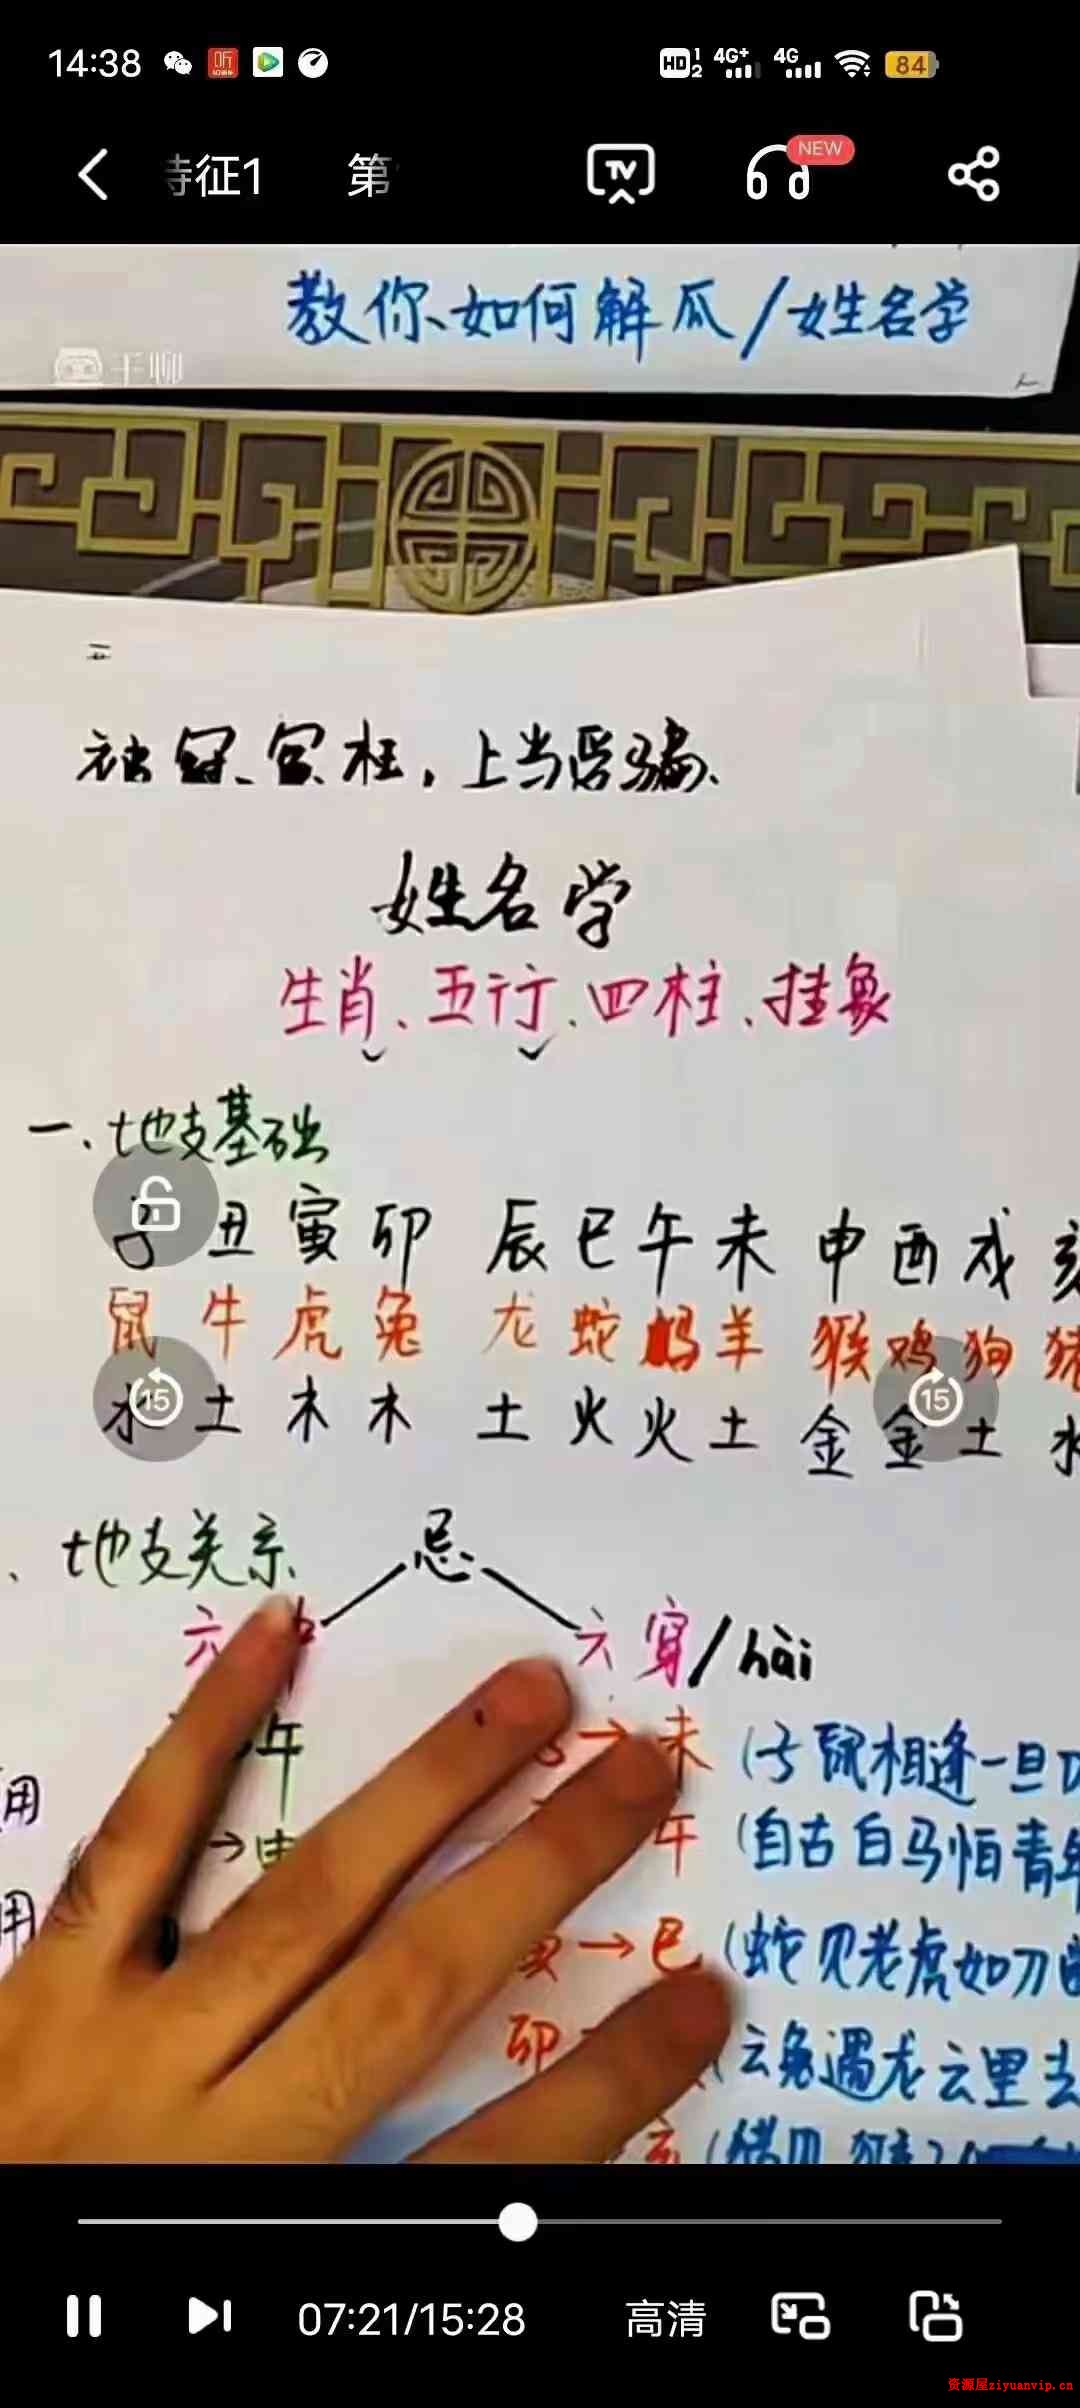 14:38 HD 1 2 4G+ 4G 84
特征1 第 TV NEW
教你如何解瓜/姓名学
千聊
二
被冤、冤枉，上当受骗、
姓名学
生肖、五行、四柱、挂象
一、地支基础
子 丑 寅 卯 辰 巳 午 未 申 酉 戌 亥
鼠 牛 虎 兔 龙 蛇 马 羊 猴 鸡 狗 猪
水 土 木 木 土 火 火 土 金 金 土 水
15 15
、地支关系 忌
六 六穿/hài
午 → 未 (子鼠相逢一旦
用 → 申 午 (自古白马怕青牛
用 寅 → 巳 (蛇见老虎如刀
卯 (云兔遇龙云里去
亥 (猪见猴
07:21/15:28 高清
资源屋ziyuanvip.cn